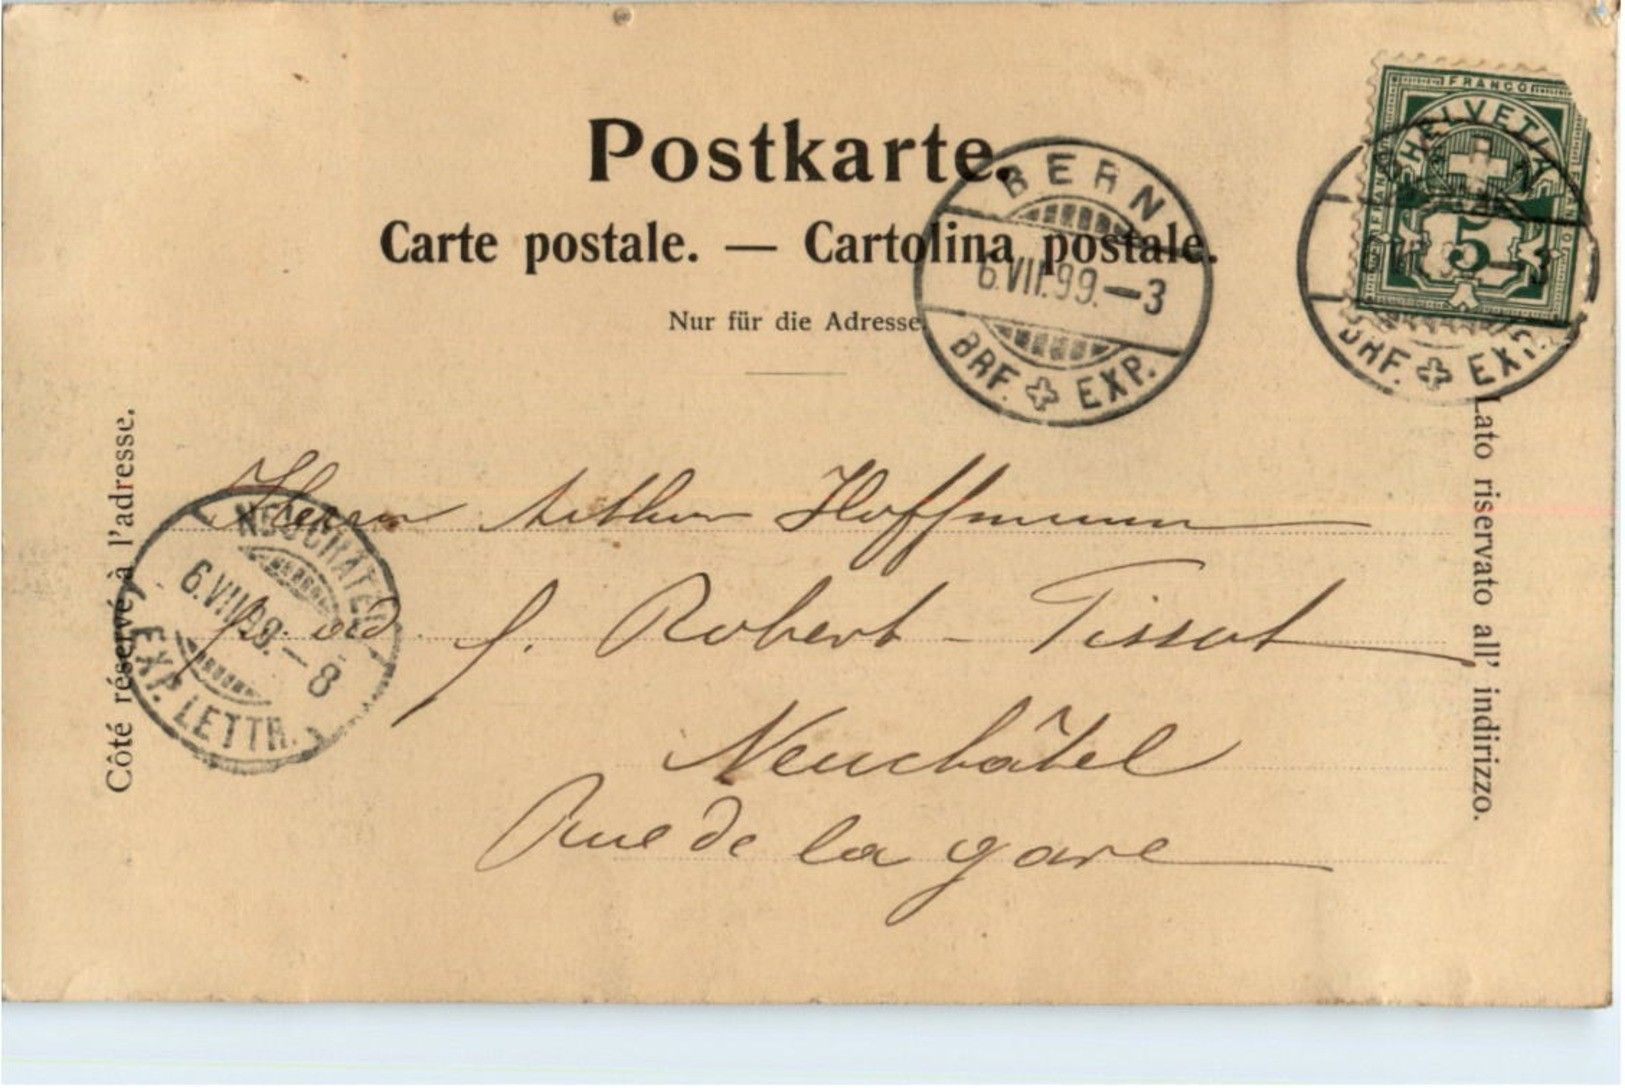 Postkarte.
Carte postale. — Cartolina postale.
Nur für die Adresse.
BERN
6.VII.99.—3
BRF. EXP.
FRANCO
HELVETIA
5
BRF. EXP.
Côté réservé à l'adresse.
Lato riservato all' indirizzo.
NEUCHÂTEL
6.VII.99.—8
EXP. LETTR.
Herrn Arthur Hoffmann
p. ad. f. Robert - Tissot
Neuchâtel
Rue de la gare